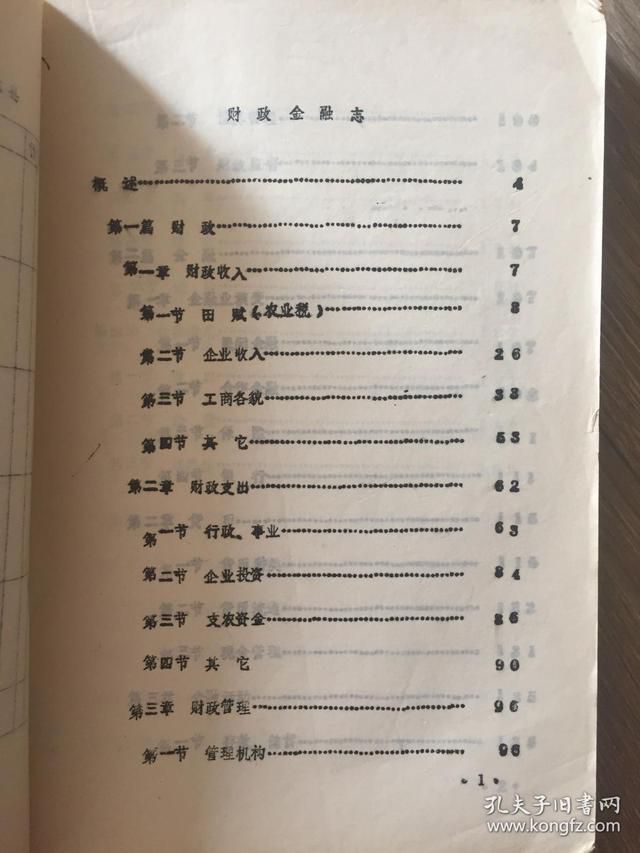 财政金融志
概述 4
第一篇 财政 7
第一章 财政收入 7
第一节 田赋(农业税) 8
第二节 企业收入 26
第三节 工商各貌 33
第四节 其它 53
第二章 财政支出 62
第一节 行政、事业 63
第二节 企业投资 84
第三节 支农资金 86
第四节 其它 90
第三章 财政管理 96
第一节 管理机构 96
·1·
孔夫子旧书网
www.kongfz.com